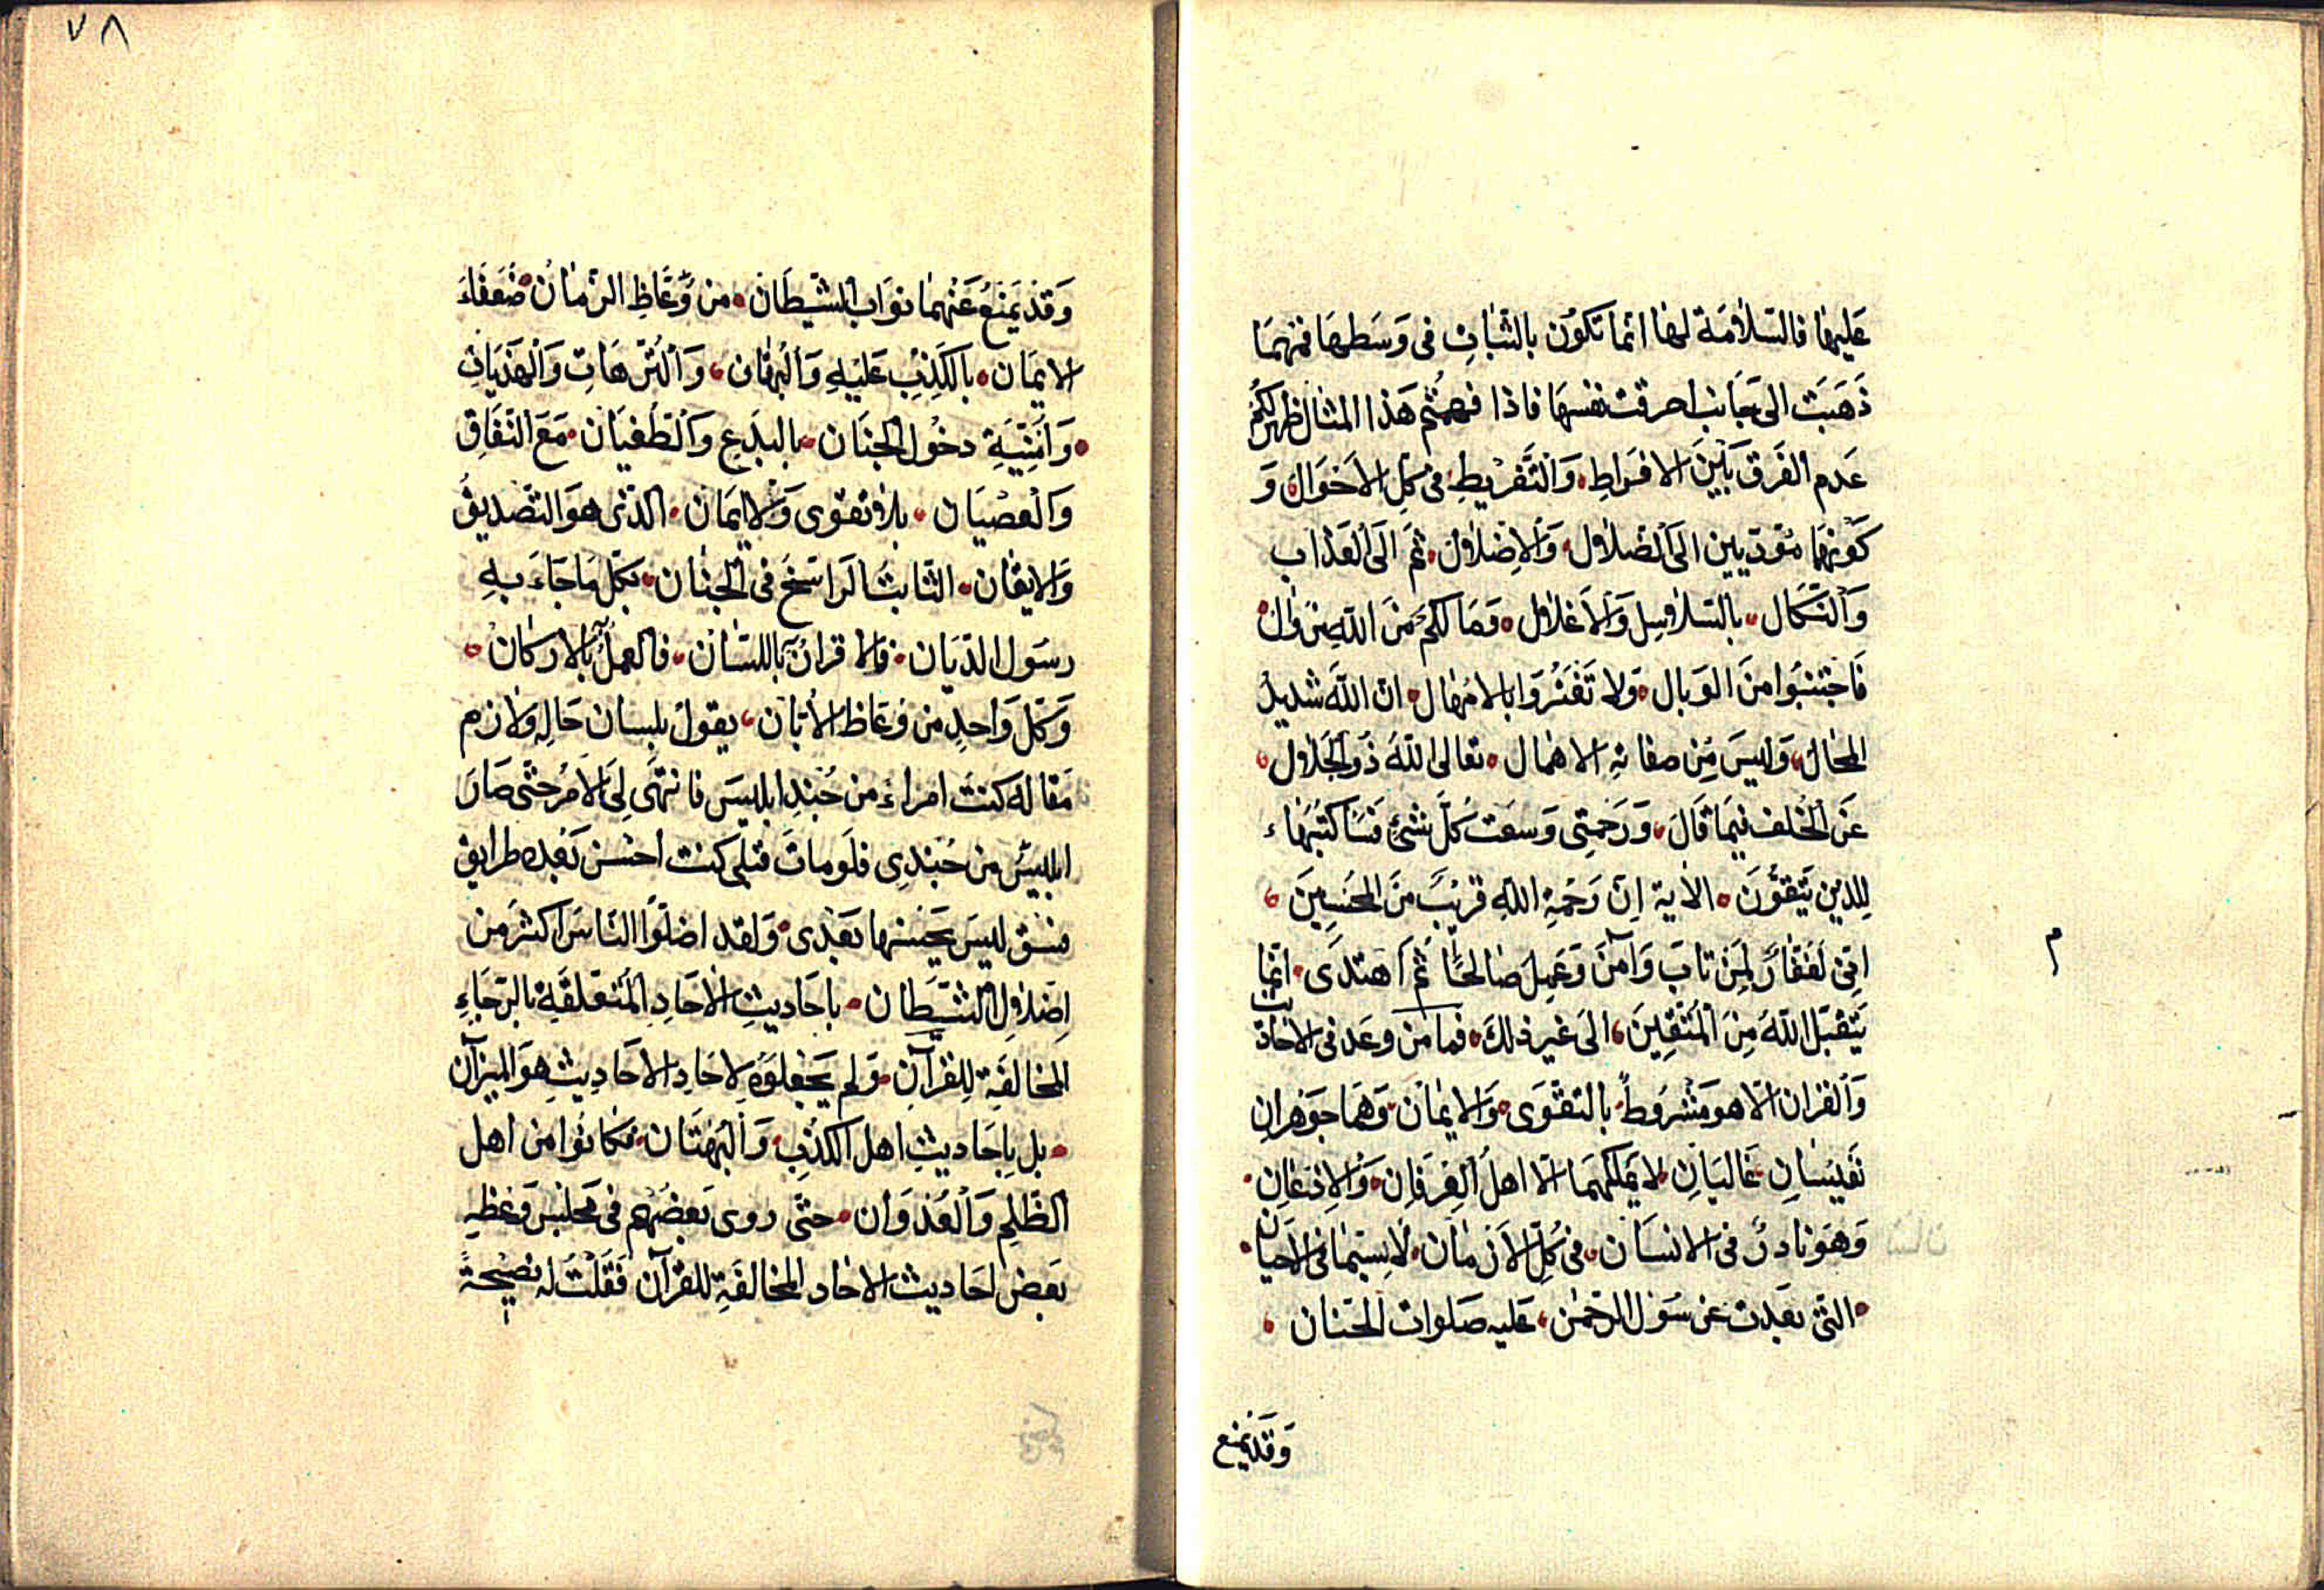 عَليهَا فالسّلاٰمَة لها انّما تكوُن بالثّبَاتِ فى وَسَطهَا فمهمَا
ذَهَبَت الى جَانب احرقت نفسهَا فاذا فهمتُم هَذا المثال ظهر لكُم
عَدم الفَرق بَيْن الافرَاطِ وَالتَّفريْطِ فى كلِ الاَحوَال وَ
كَونهمَا مؤدّيين الىَ الضلاٰول وَالاِضلاٰول ثمّ الىَ العَذاب
وَالنّكال بالسّلاٰسِل وَالاَغلاٰول وَمَا لكمُ منَ اللّهِ منْ وٰالْ
فَاجتنبُوا منَ الوَبال وَلا تَغتَرُوا بالامْهَال انّ اللّهَ شديدُ
المحَال وَليسَ مِن صفاتهِ الاهمَال تعالى اللّهُ ذوُ الجَلاٰول
عَن الخُلف فيمَا قَالَ وَرَحمتِى وَسعَت كلَّ شئٍ فسَاَكتبُهَاء
لِلذين يَتّقوُنَ الاٰية اِنّ رَحْمَةِ اللّهِ قريْبَ منَ المحْسنِينَ
انّى لَغفّارٌ لمِن تابَ وَآمنَ وَعَمِلَ صَالحًا ثمَّ اهتدَى انّما
يَتقبّل اللّهَ مِنَ المُتّقِينَ الىَ غير ذلكَ فما من وعَد فى الاخاد يث
وَالقرآن الّا هو مَشرُوطٌ بالتقوَى وَالايمَان وَهمَا جوَهرانِ
نَفيسَانِ غَاليَانِ لا يَملكهمَا الّا اهلُ العِرفَانِ وَالاِذعَانِ
وَهوَ نادرٌ فى الانسَان فى كُلِّ الاَزمَان لاسِيّمَا فى الاَحيَان
التّى بعَدت عن رسَوُل الرّحمٰن عَليه صَلوَات الحَنّان
وَقد يمنع
م
٧٨
وَقد يَمنَعُ عَنْهمَا نوَاب الشيطَان من وُعّاظِ الزّمَان ضُعَفَاءَ
الايمَان بالكَذِب عَليْهِ وَالبُهتَان وَالتُرّهَاتِ وَالهذيَانِ
وَاُمنِيَّةِ دخُول الجنَان بالبدَعِ وَالطغيَان مَعَ النّفَاقِ
وَالعصيَان بلاٰ تقوىَ وَالايمَان الذّى هوَ التّصديقُ
وَالايقَان الثّابتُ الرَاسخَ فى الجنَان بكل مَا جَاءَ بهِ
رسَول الدّيَان والاقرارُ باللسَان فالعملُ بالاركانْ
وَكلّ وَاحدٍ من وعّاظ الاَبّان يقول بلِسان حَالهِ ولاٰزم
مَقاله كنت امراءً من جُندِ ابليسَ فانتهَى لىَ الاَمرُ حتّى صَارَ
ابليسُ من جُندِى فلَو ماتَ قبلى كنت احسن بَعْده طرايق
فسْق ليسَ يَحسنها بَعْدى وَلقد اضلّوا النّاسَ اكثرَ من
اِضلاٰول الشيّطان باحَاديثِ الاٰحَادِ المتعَلقَةِ بالرّجَاءِ
المخالفَةِ للِقرآنِ وَلم يَجعلوُه لاِحَادِ الاحَادِيثِ هوَ الميزآن
بل باِحَاديثِ اهل الكذبِ وَالبُهتَان فكانوا من اهل
الظّلمِ وَالعُدْوَان حتّى روى بَعضهُم فى مجلسْ وَعظهِ
بَعض احَاديث الاخاد المخالفَةِ للقرآن فَقلتُ له نصيْحةً